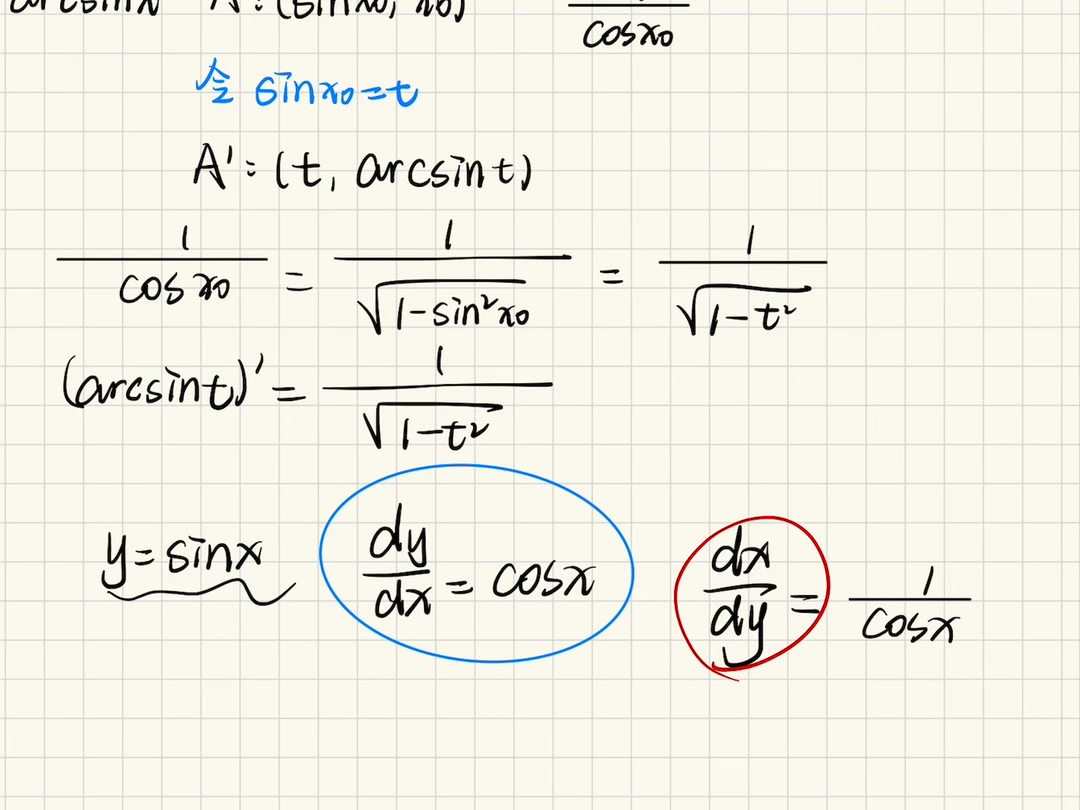 arcsinx A': (sinx₀, x₀) 1/cosx₀
令 sinx₀=t
A': (t, arcsint)
1/cosx₀ = 1/√(1-sin²x₀) = 1/√(1-t²)
(arcsint)' = 1/√(1-t²)
y=sinx dy/dx = cosx dx/dy = 1/cosx